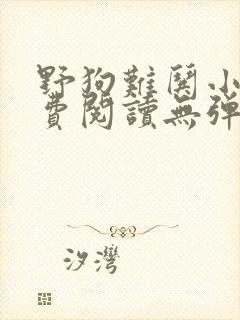 野狗難闋小
費閱讀無彈
汐灣